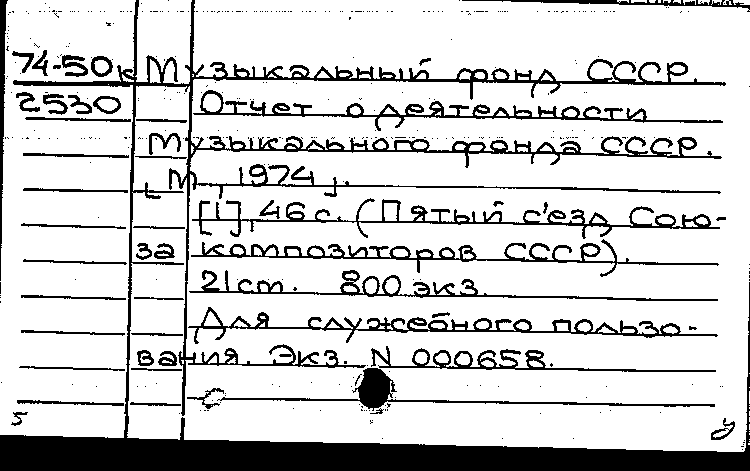 74-50к Музыкальный фонд СССР.
2530 Отчет о деятельности
Музыкального фонда СССР.
[М., 1974].
[1], 46 с. (Пятый с'езд Сою-
за композиторов СССР).
21 cm. 800 экз.
Для служебного пользо-
вания. Экз. N 000658.
5 у